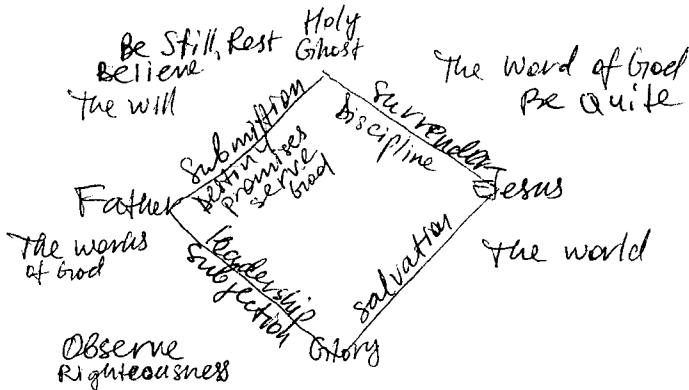 Be Still, Rest
Believe
The will
Holy
Ghost
The Word of God
Be Quite
Submission
Destiny
promises
serve
God
Surrender
Discipline
Father
Jesus
The works
of God
leadership
Subjection
Salvation
The world
Glory
Observe
Righteousness